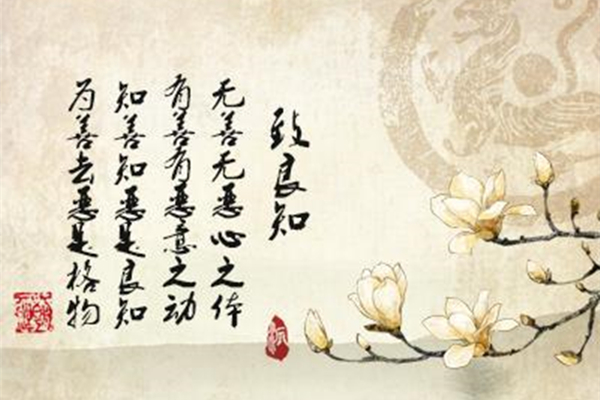 致良知
无善无恶心之体
有善有恶意之动
知善知恶是良知
为善去恶是格物